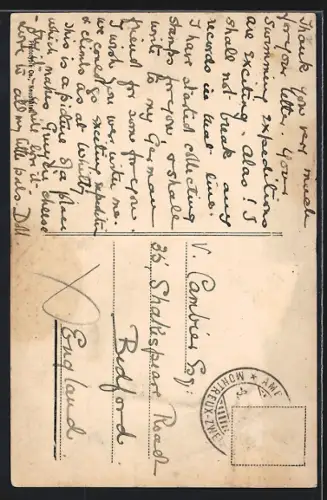 Thank you very much
for your letter. Your
swimming expeditions
are exciting. Alas! I
shall not break any
records in that line.
I have started collecting
stamps for you & shall
write to my German
friend for some for you.
I wish you were with me.
we could go exciting expeditions
& climbs as at Whitby.
This is a picture of a place
which makes Gruyère cheese
will like it -
love to all my little pals. D.M.
V. Cambier Esq:
35, Shakespeare Road
Bedford.
England.
MONTREUX-ZWEI
AMB